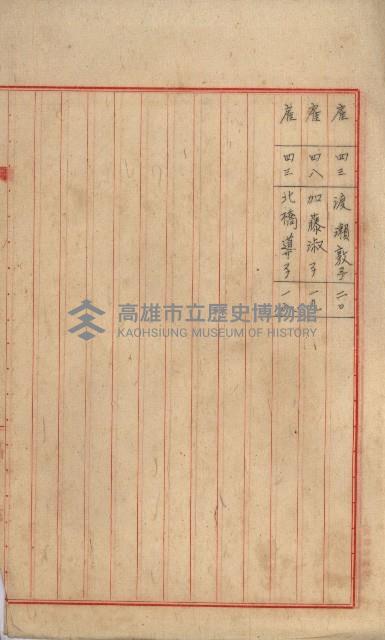 雇 四三 渡瀬敦子 二〇
雇 四八 加藤淑子
雇 四三 北橋導子
高雄市立歷史博物館
KAOHSIUNG MUSEUM OF HISTORY